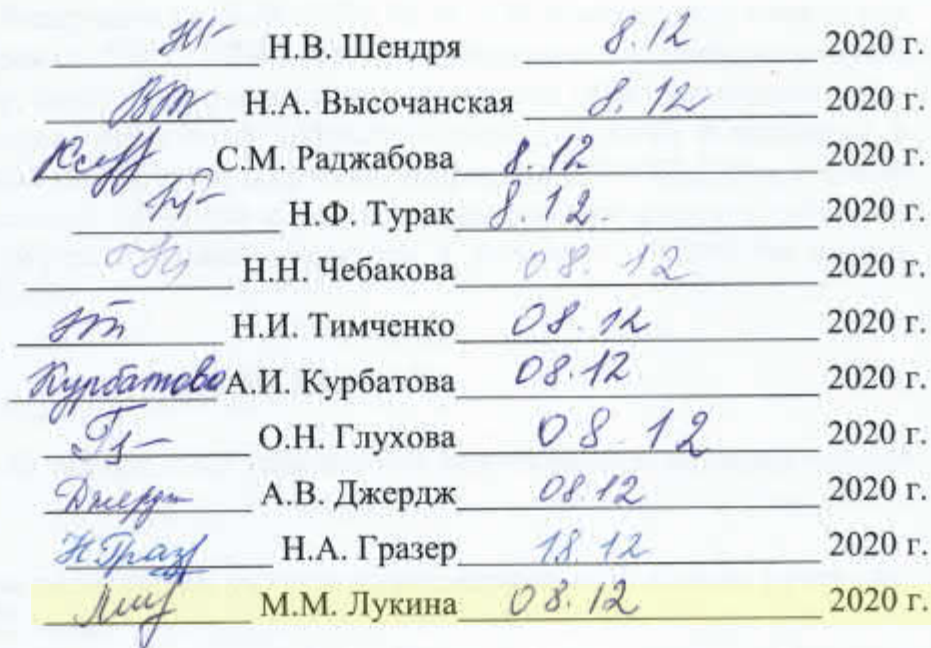 Н.В. Шендря 8.12 2020 г.
Н.А. Высочанская 8.12 2020 г.
С.М. Раджабова 8.12 2020 г.
Н.Ф. Турак 8.12. 2020 г.
Н.Н. Чебакова 08.12 2020 г.
Н.И. Тимченко 08.12 2020 г.
Курбатова А.И. Курбатова 08.12 2020 г.
О.Н. Глухова 08.12 2020 г.
А.В. Джердж 08.12 2020 г.
Н.А. Гразер 18.12 2020 г.
М.М. Лукина 08.12 2020 г.